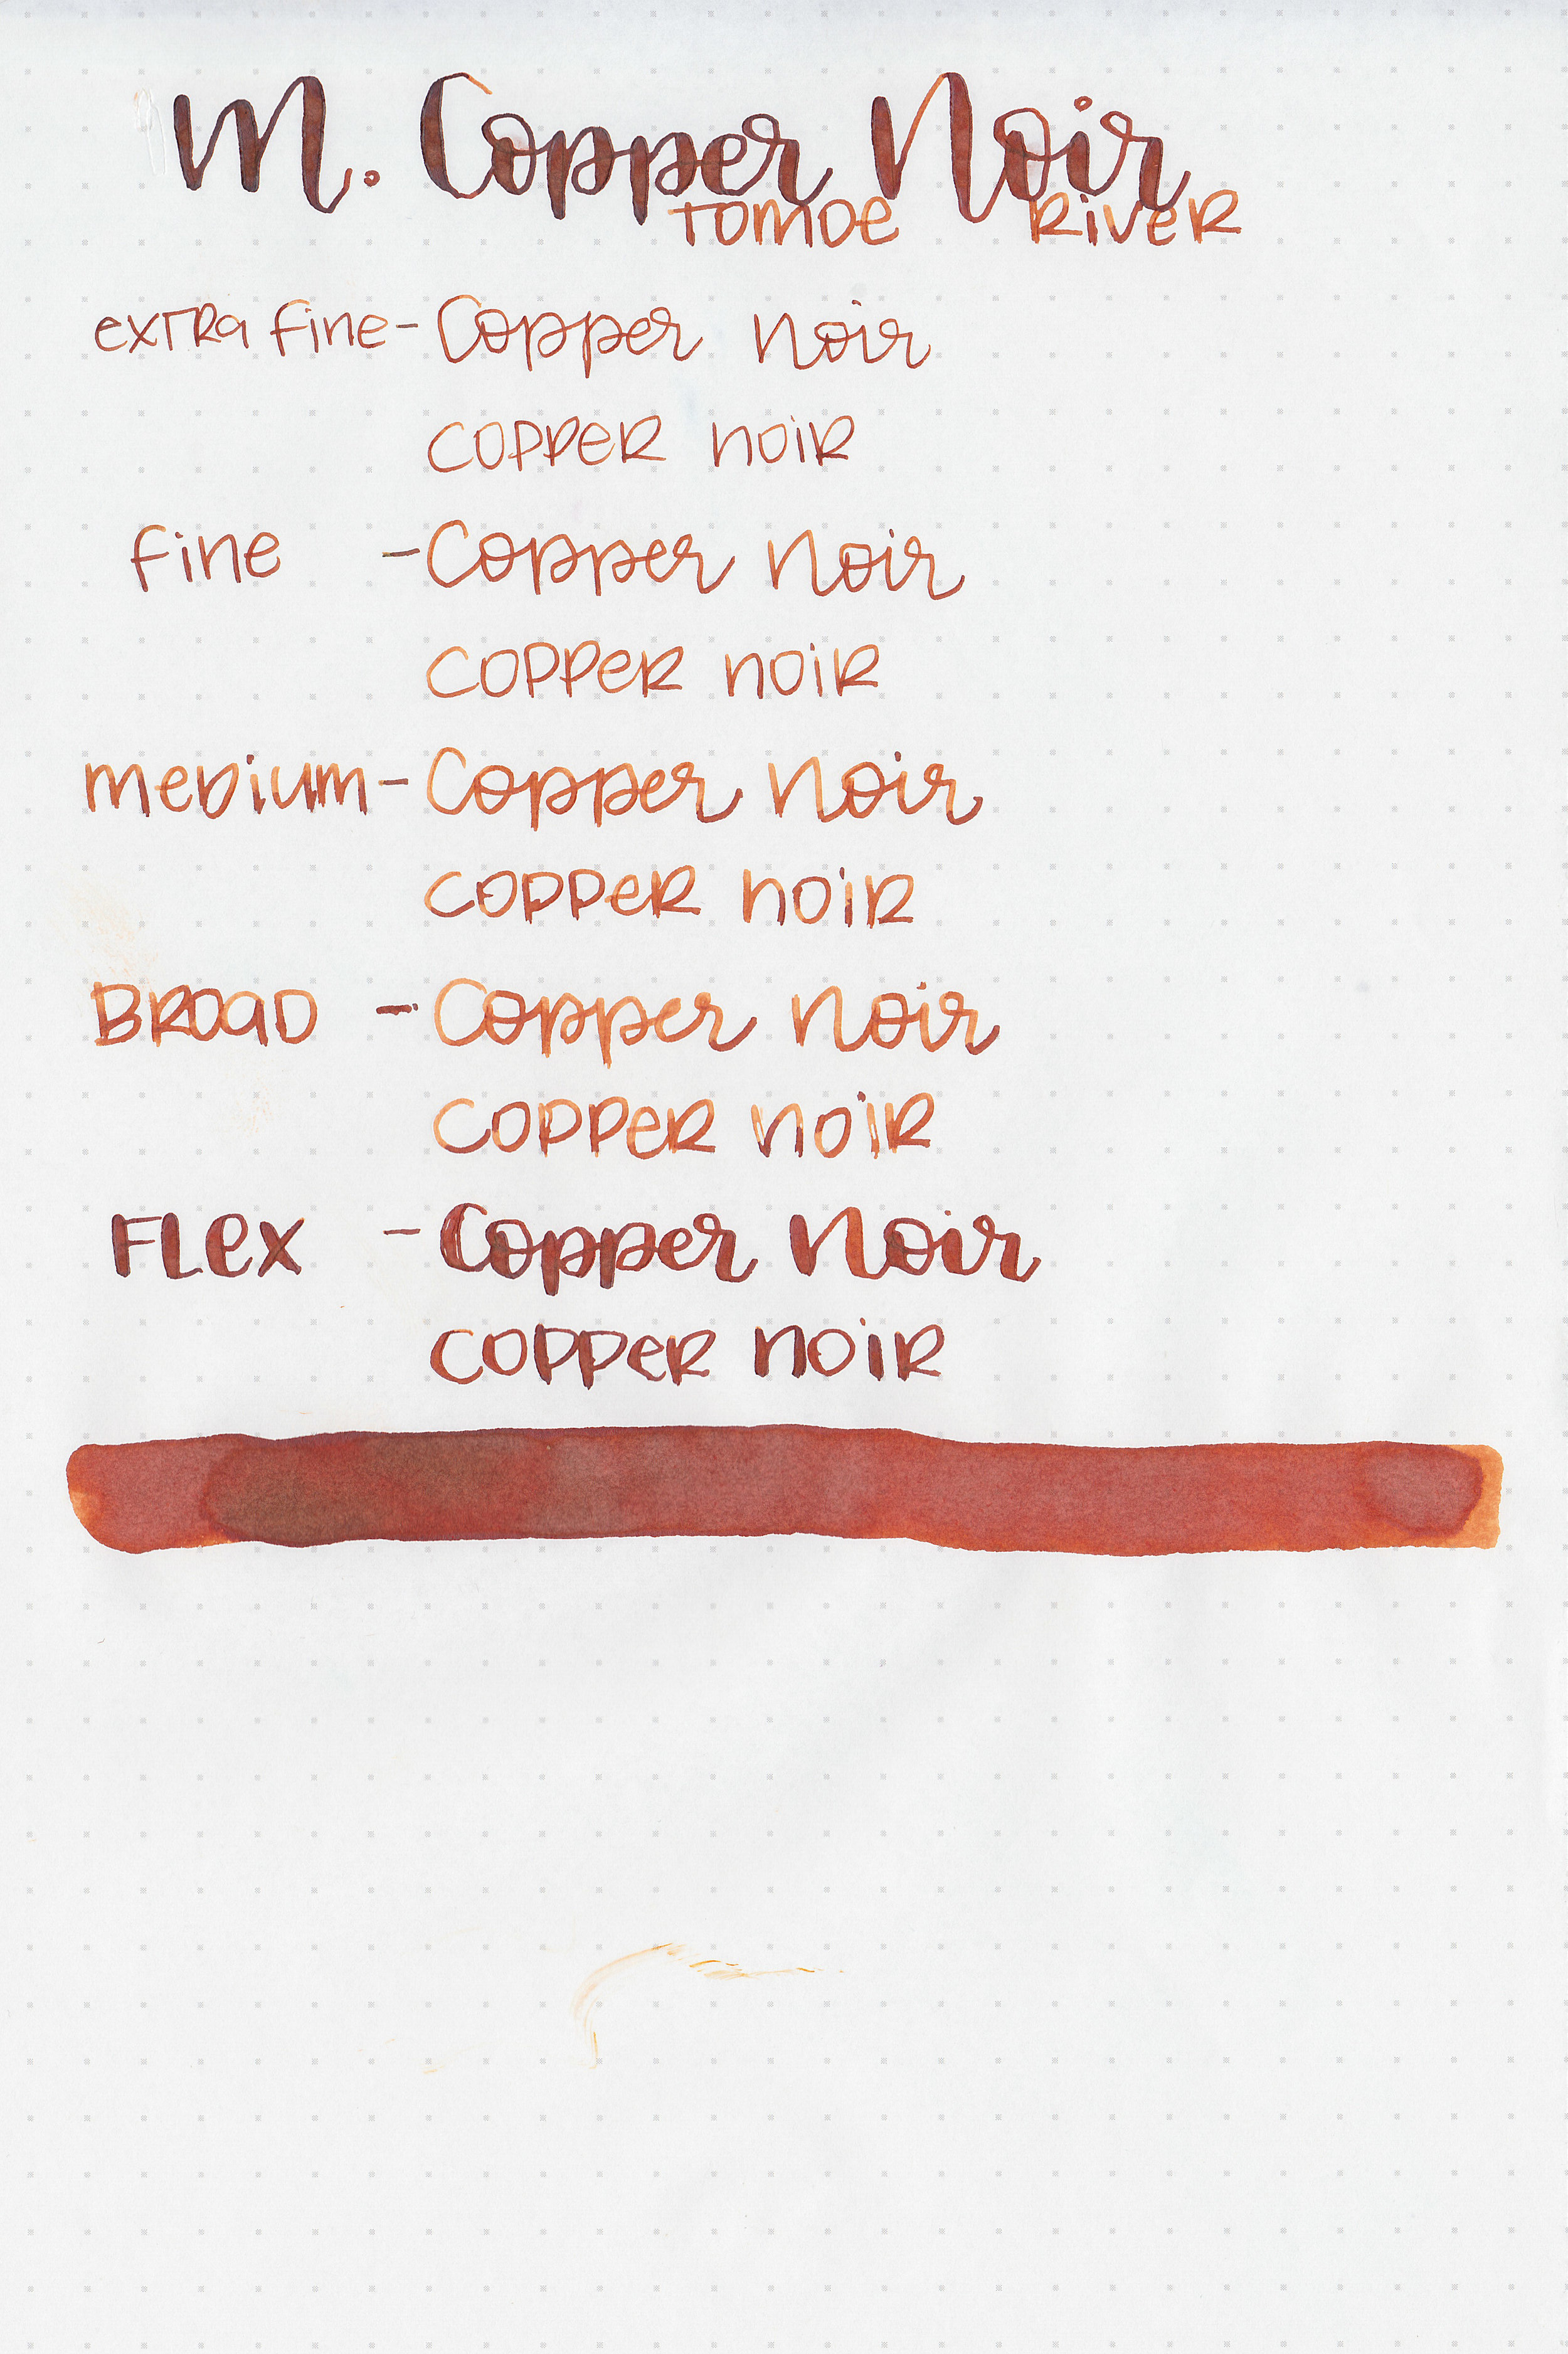 M. Copper Noir
Tomoe River
extra fine - Copper Noir
copper noir
fine - Copper Noir
copper noir
medium - Copper Noir
copper noir
Broad - Copper Noir
copper noir
Flex - Copper Noir
copper noir